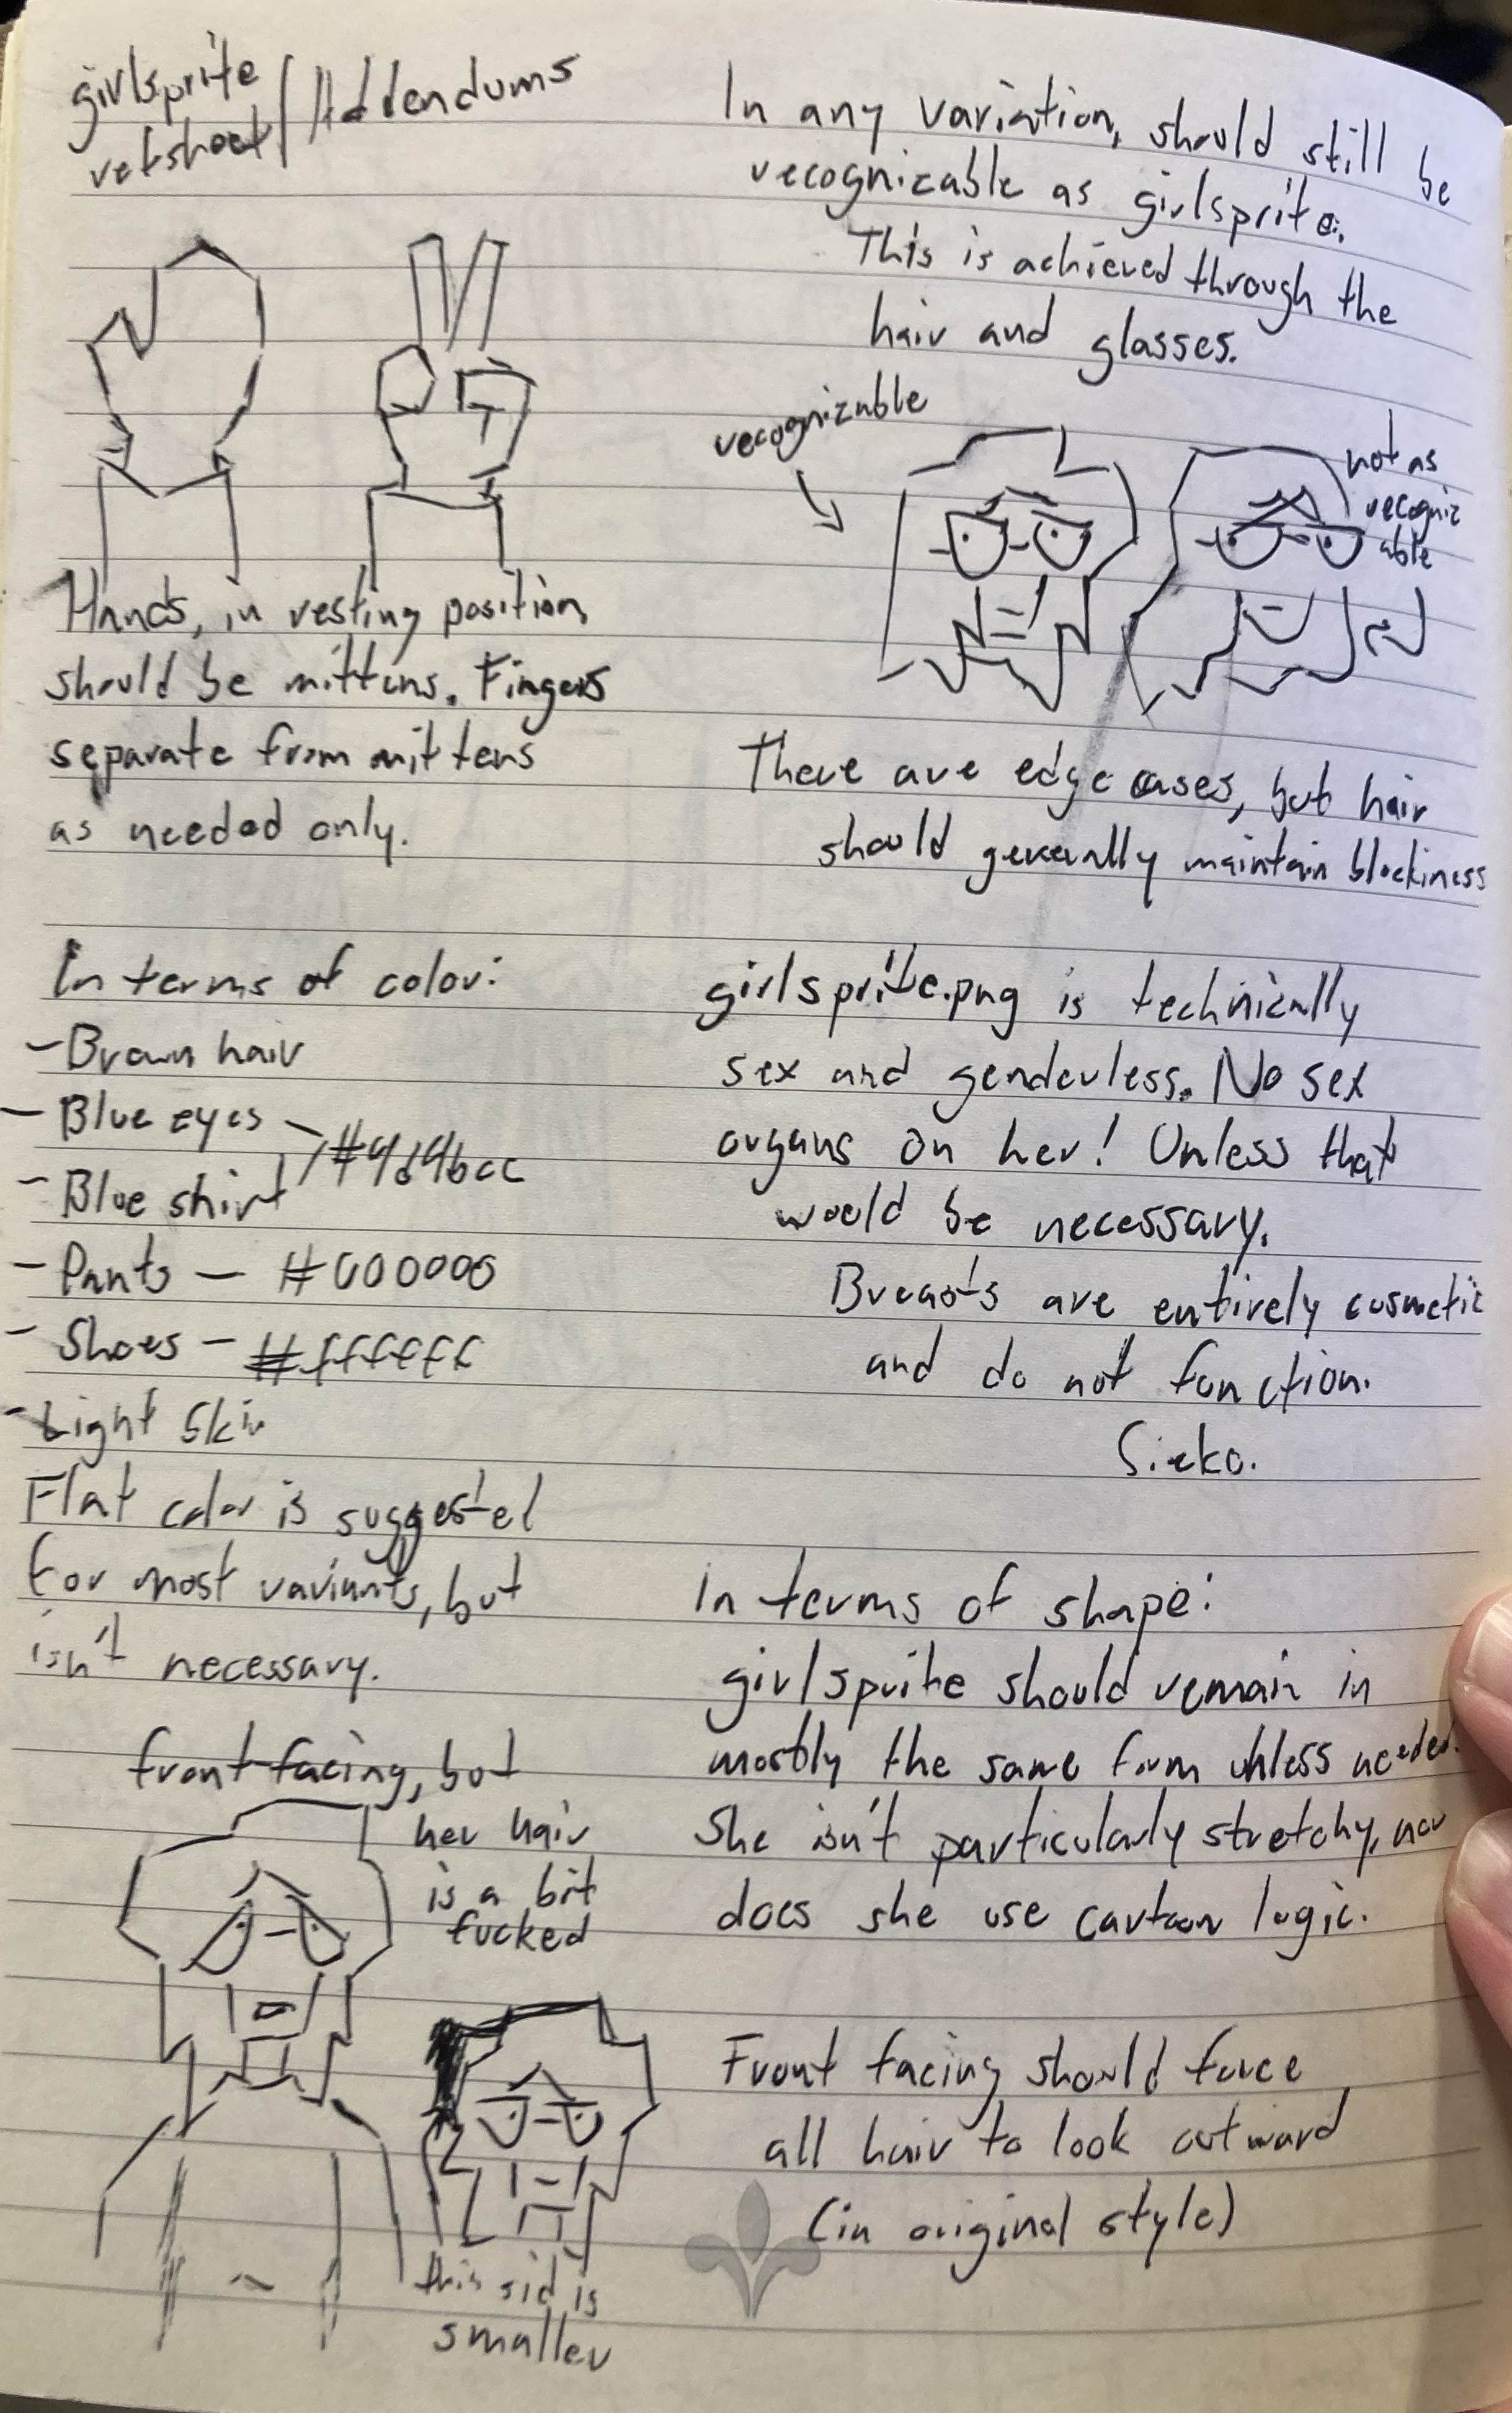 girlsprite
refsheet / Addendums
Hands, in resting position
should be mittens. Fingers
separate from mittens
as needed only.
In terms of color:
- Brown hair
- Blue eyes
- Blue shirt
#4d4bcc
- Pants - #000000
- Shoes - #ffffff
- Light skin
Flat color is suggested
for most variants, but
isn't necessary.
front facing, but
her hair
is a bit
fucked
this sid is
smaller
In any variation, should still be
recognizable as girlsprite.
This is achieved through the
hair and glasses.
recognizable
not as
recogniz
able
There are edge cases, but hair
should generally maintain blockiness
girlsprite.png is technically
sex and genderless. No sex
organs on her! Unless that
would be necessary.
Breasts are entirely cosmetic
and do not function.
In terms of shape:
girlsprite should remain in
mostly the same form unless needed.
She isn't particularly stretchy, nor
does she use cartoon logic.
Front facing should force
all hair to look outward
(in original style)